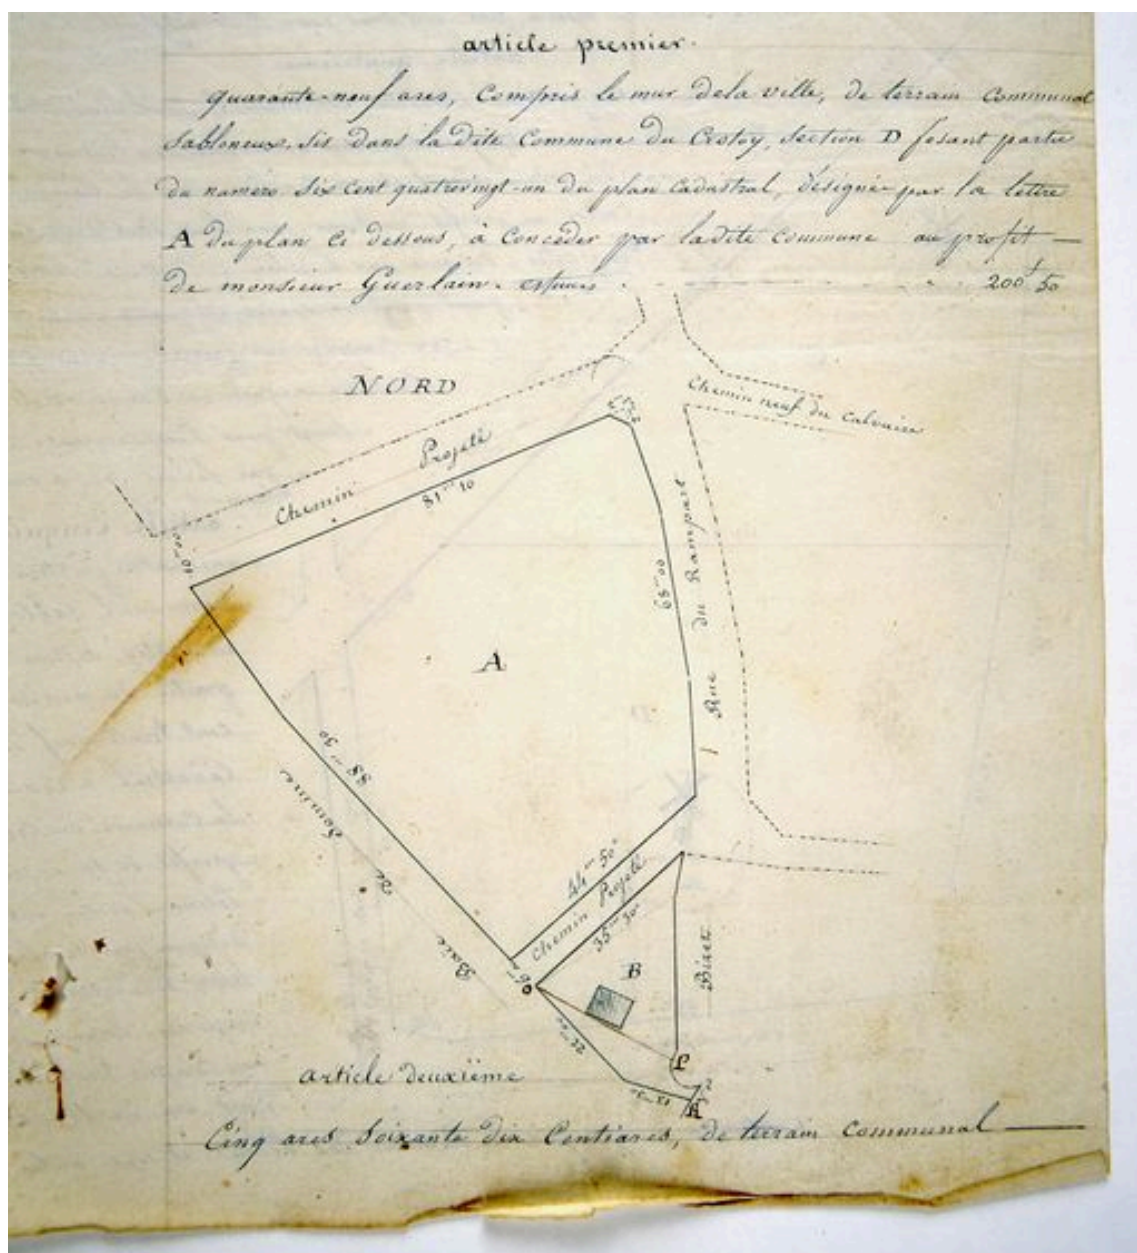 article premier.
quarante-neuf ares, compris le mur dela ville, de terrain communal
sabloneux, sis dans la dite Commune du Crotoy, section D fesant partie
du numéro six cent quatrevingt-un du plan cadastral, désignée par la lettre
A du plan ci dessous, à concéder par ladite commune au profit —
de monsieur Guerlain. estimés . . . . 200 f 50
NORD
Chemin neuf du Calvaire
Chemin Projeté
81m 10
10m 00
Rue du Rampart
68m 00
A
88m 30
Baie de Somme
44m 50
Chemin Projeté
35m 30
B
Bizet
22m 00
L
K
article deuxième
Cinq ares soixante dix Centiares, de terrain communal —